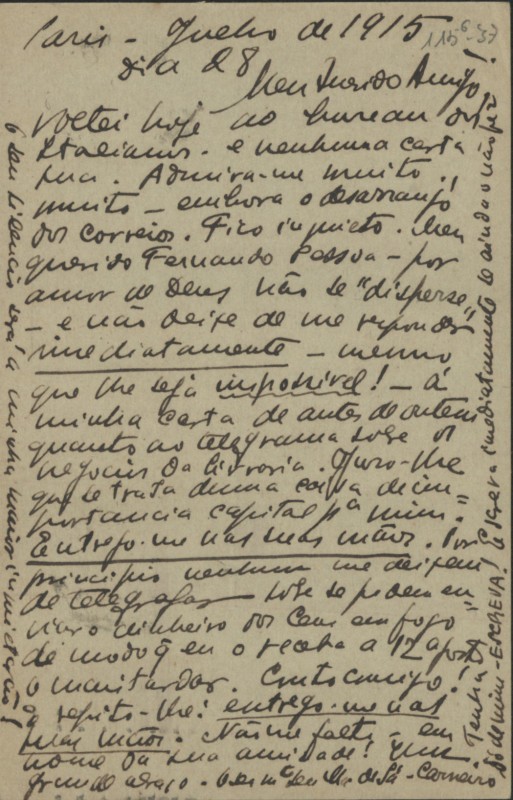 Paris - Julho de 1915
dia 28
115-6-37
Meu Querido Amigo,
voltei hoje ao bureau dos
Italianos - e nenhuma carta
sua. Admira-me muito,
muito - embora o desarranjo
dos correios. Fico inquieto. Meu
querido Fernando Pessoa - por
amor de Deus não se "disperse"
- e não deixe de me responder
imediatamente - mesmo
que lhe seja impossivel! - á
minha carta de antes de ontem
quanto ao telegrama sobre os
negocios da livraria. Juro-lhe
que se trata duma coisa de im-
portancia capital pª mim.
Entrego-me nas suas mãos. Por
principio nenhum me deixem
de telegrafar sobre se podem en
viar o dinheiro dos Ceus em fogo
de modo q eu o receba a 12 agosto
o mais tardar. Conto comigo!
repito-lhe: entrego-me nas
suas mãos. Não me falte - em
nome da sua amizade! Um
grande abraço - o seu mto seu Mário de Sá-Carneiro
Tenha Dó de mim - ESCREVA! Escreva imediatamente se ainda o não fez!
o seu silencio será a minha maior inquietação!